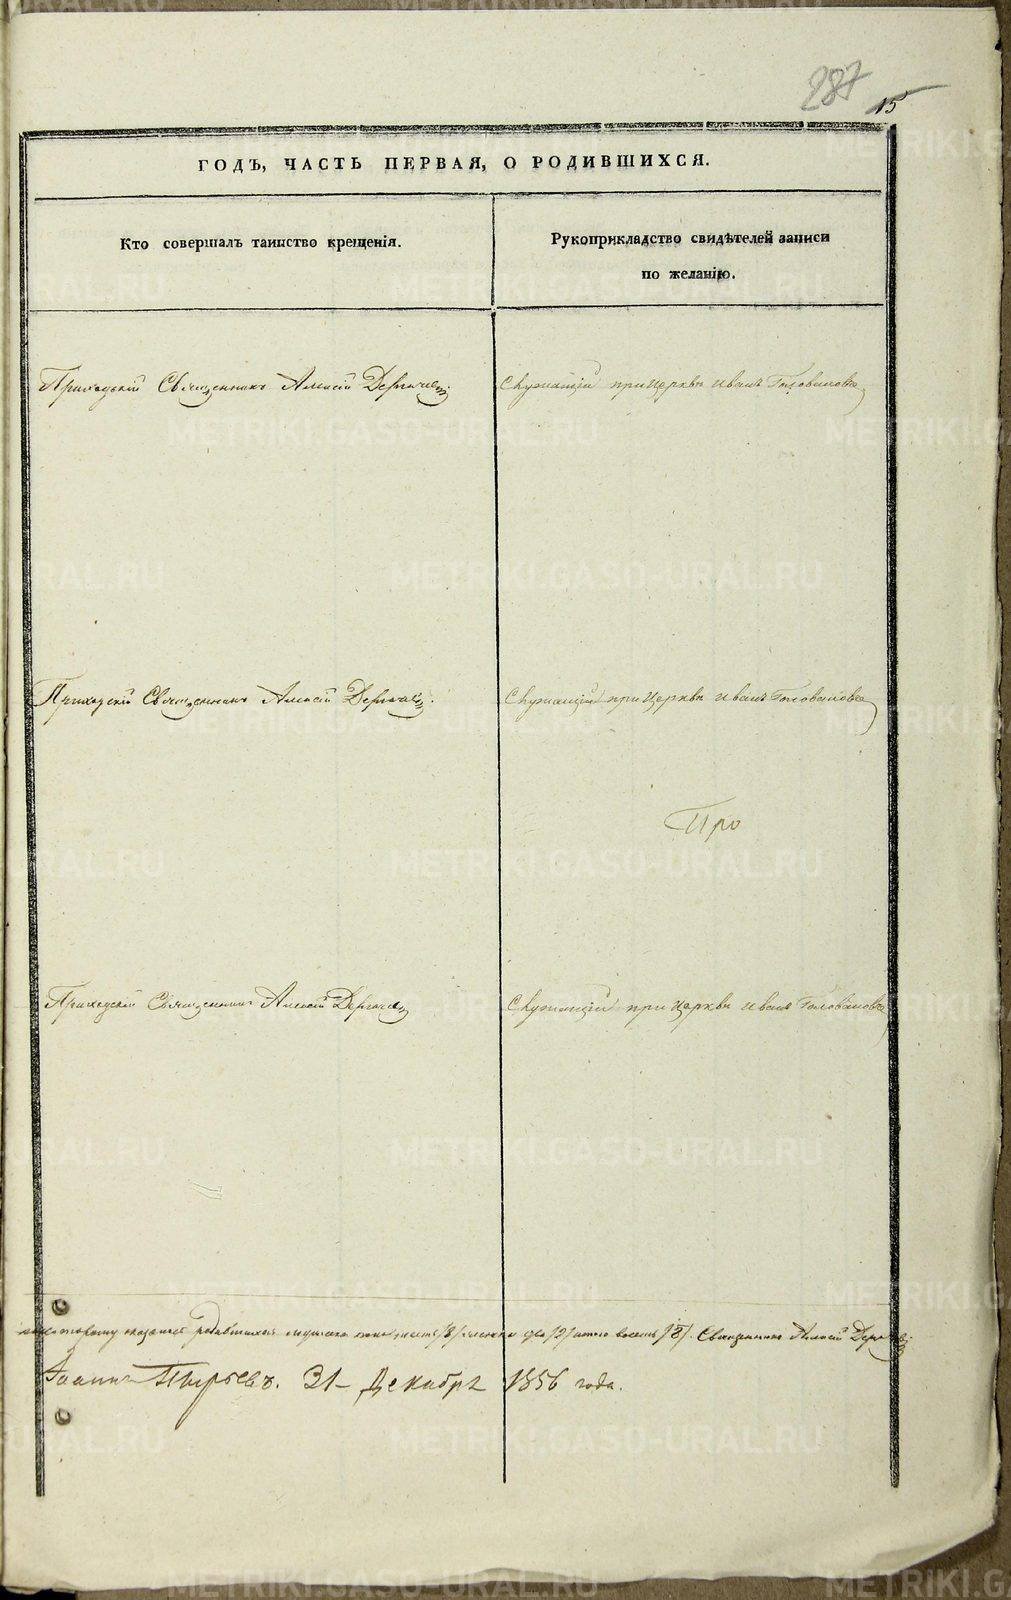 287
15
ГОДЪ, ЧАСТЬ ПЕРВАЯ, О РОДИВШИХСЯ.
Кто совершалъ таинство крещенія.
Рукоприкладство свидѣтелей записи
по желанію.
Приходскій Священникъ Алексій Дергачевъ.
Служащій при Церквѣ Иванъ Головановъ
Приходскій Священникъ Алексій Дергачевъ.
Служащій при Церквѣ Иванъ Головановъ
Про
Приходскій Священникъ Алексій Дергачевъ
Служащій при Церквѣ Иванъ Головановъ
родившихся мужеска пола /2/ итого восемь /8/. Священникъ Алексій Дергачевъ
Іоаннъ 31 Декабря 1856 года.
METRIKI.GASO-URAL.RU